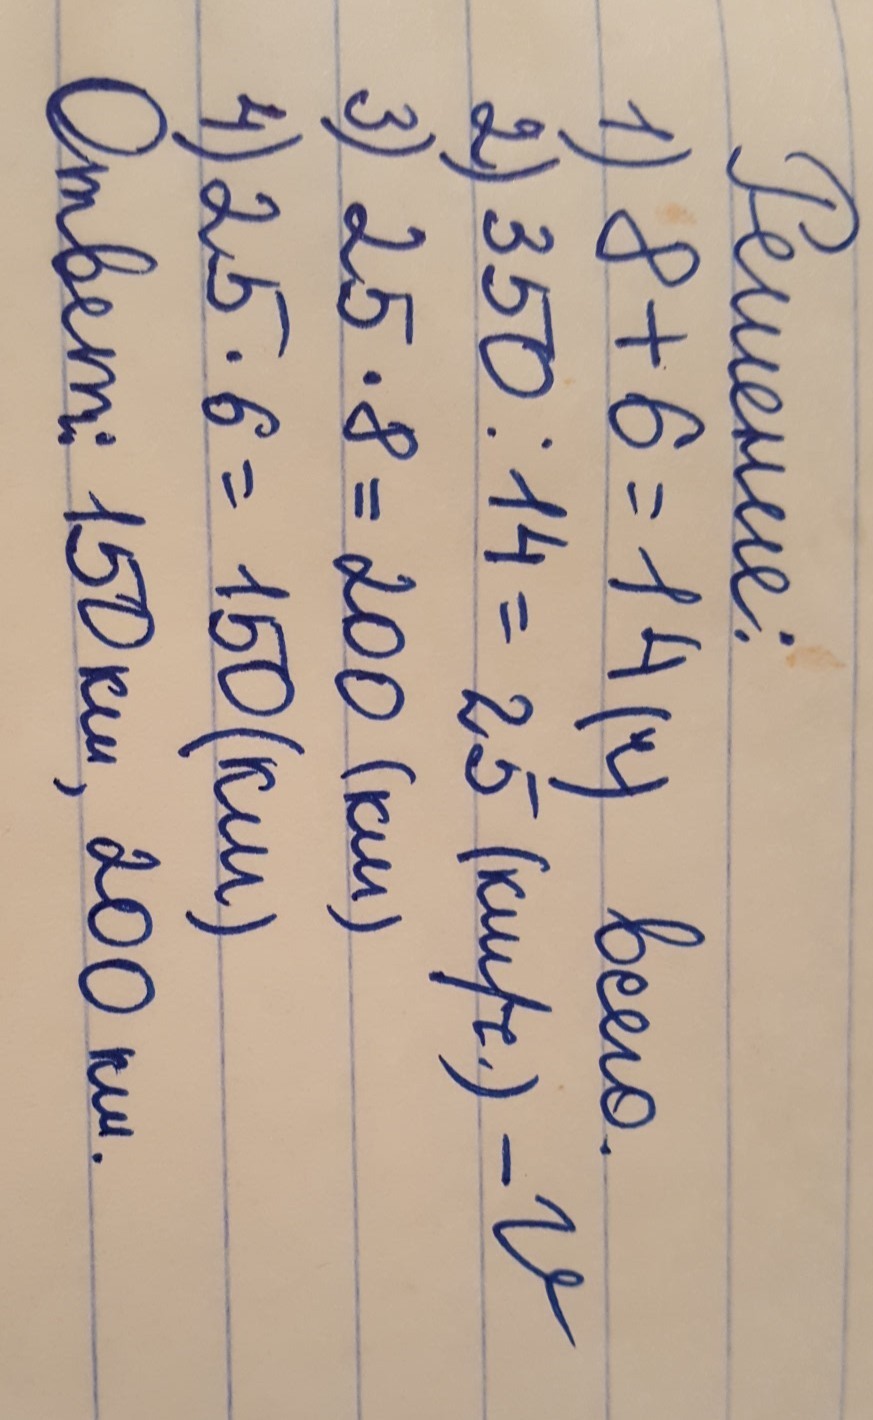 Решение:
1) 8 + 6 = 14 (ч) всего.
2) 350 : 14 = 25 (км/ч.) - V
3) 25 · 8 = 200 (км)
4) 25 · 6 = 150 (км)
Ответ: 150 км, 200 км.